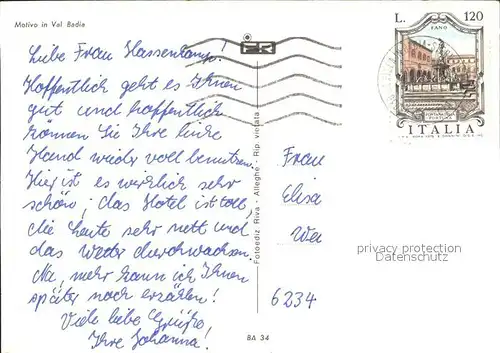 Motivo in Val Badia
L. 120
FANO
ITALIA
Liebe Frau Hassenkamp!
Hoffentlich geht es Ihnen
gut und hoffentlich
können Sie Ihre linke
Hand wieder voll benutzen.
Hier ist es wirklich sehr
schön; das Hotel ist toll,
die Leute sehr nett und
das Wetter durchwachsen.
Na, mehr kann ich Ihnen
später noch erzählen!
Viele liebe Grüße,
Ihre Johanna!
Fotoediz. Riva - Alleghe - Rip. vietata
Frau
Elisa
We
privacy protection
Datenschutz
6234
BA 34